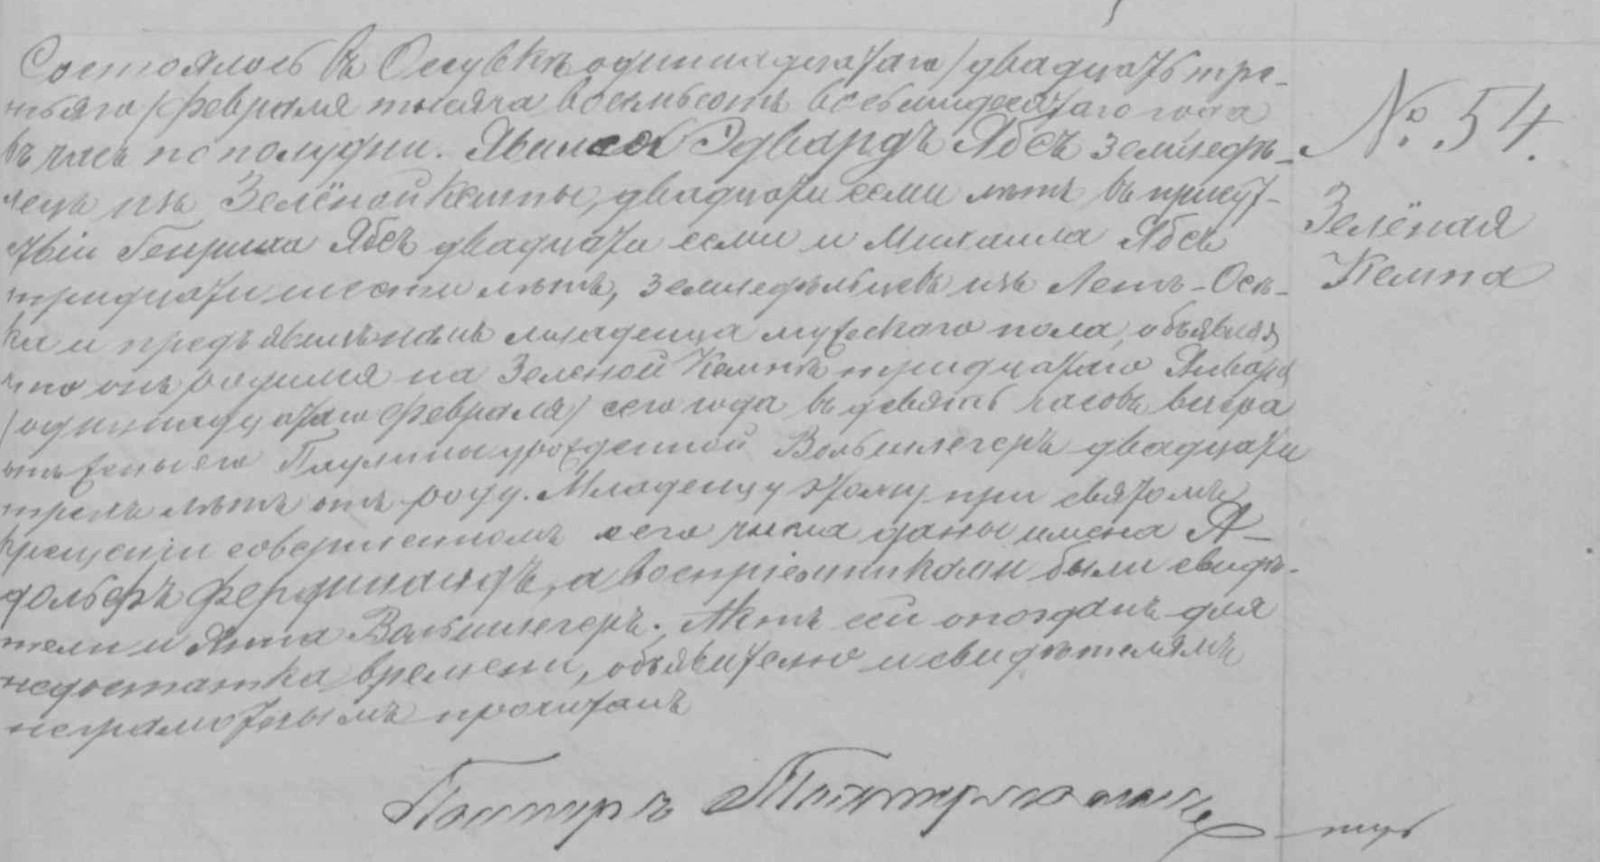 Состоялось въ Осувкѣ одиннадцатаго /двадцать тре-
тьяго/ февраля тысяча восемьсотъ восьмидесятаго года
въ часъ по полудни. Явился Эдвардъ Ябсъ земледѣ-
лецъ изъ Зелёной Кемпы, двадцати семи лѣтъ въ присут-
ствіи Генриха Ябсъ двадцати семи и Михаила Ябсъ
тридцати шести лѣтъ, земледѣльцевъ изъ Летъ-Ось-
ка и предъявилъ намъ младенца мужескаго пола, объявляя
что онъ родился на Зеленой Кемпѣ тридцатаго Января
/одиннадцатаго февраля/ сего года въ девять часовъ вечера
отъ жены его Паулины урожденной Вольшлегеръ двадцати
трехъ лѣтъ отъ роду. Младенцу этому при святомъ
крещеніи совершенномъ сего числа даны имена А-
дольфъ Фердинандъ, а воспріемниками были свидѣ-
тели и Анна Вольшлегеръ. Актъ сей опозданъ для
недостатка времени, объявителю и свидѣтелямъ
неграмотнымъ прочитанъ
Пасторъ
№ 54.
Зелёная
Кемпа